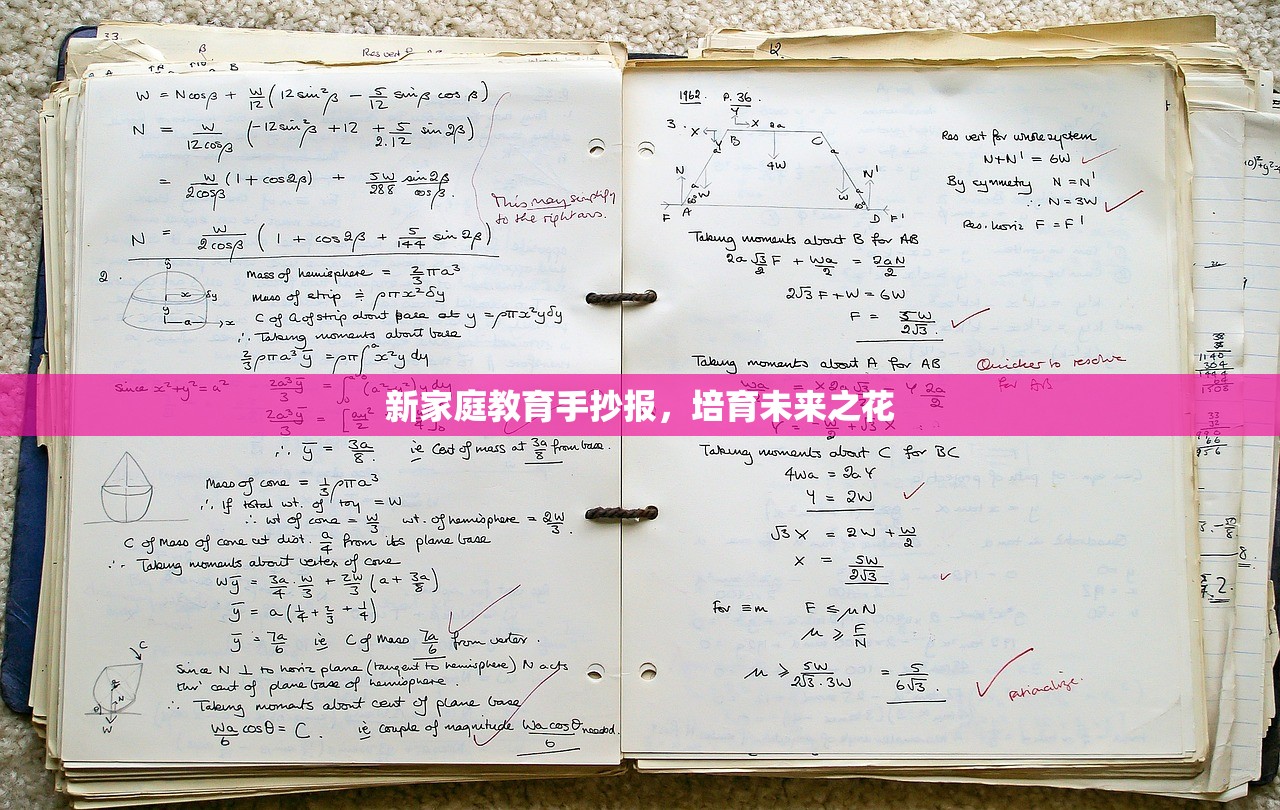 33.
Res vert
β
A B
W = N cosβ + W/12 (12 sin²β − 5/12 sinβ cosβ)
N = W/12cosβ (-12 sin²β + 12 + 5/2.12 sin 2β)
= W/2cosβ (1 + cos2β) + 5W/288 sin2β/cosβ.
This may simplify
to the right ans.
N = W/2cosβ (1 + cos2β + 5/144 sin 2β)
2.
y
x δy
y
a x
Mass of hemisphere = 2/3 πa³
Mass of strip ≑ ρπx²δy
C of G of strip about base at y = ρπx²yδy
∴ Taking moments about base
2/3 ρπa³ȳ = ρπ∫ᵃ x²y dy
since x²+y²=a²
2a³ȳ/3 = ∫₀ᵃ (a²-y²)y dy
新家庭教育手抄报，培育未来之花
2a³ȳ/3
∴ ȳ = 3a/8 ie Cent of mass at 3a/8 from base.
Mass of cone = 1/3 ρπa³
∴ If total wt. of toy = W
∴ wt of cone = W/3 wt. of hemisphere = 2W/3.
C of Mass of cone at dist. a/4 from its plane base
∴ Taking moments about vertex of cone
Wȳ = 3a/4 . W/3 + 2W/3 (a + 3a/8)
ȳ = a(1/4 + 2/3 + 1/4)
ȳ = 7a/6 ie C of Mass 7a/6 from vertex.
C
N
W
θ
Since N ⊥ to horiz plane (tangent to hemisphere) N acts
thro' cent of plane base of hemisphere.
∴ Taking moments about cent of plane base
Wa/6 cosθ = C. ie couple of magnitude Wa cosθ/6 needed.
12
1962. P. 36.
3.
X Y X 2a
B C
4W
N N'
W W
60° 60°
F A D F'
Res vert for whole system
N+N' = 6W
By symmetry N = N'
∴ N = 3W
Res. horiz F = F'
Taking moments about B for AB
2a √3/2 F + Wa/2 = 2aN/2
2√3 F + W = 6W
F = 5W/2√3.
Taking moments about A for AB
Quicker to resolve
for AB
Wa/2 = X 2a √3/2 − Y 2a/2
Taking moments about C for BC
4Wa = 2aY
Y = 2W
√3 X = 2W + W/2
X = 5W/2√3
For ≡m F ≤ μN
μ ≥ F/N
μ ≥ 5W/2√3.3W = 5/6√3.
rationalize.
38
38
1140
304
1508
33
33